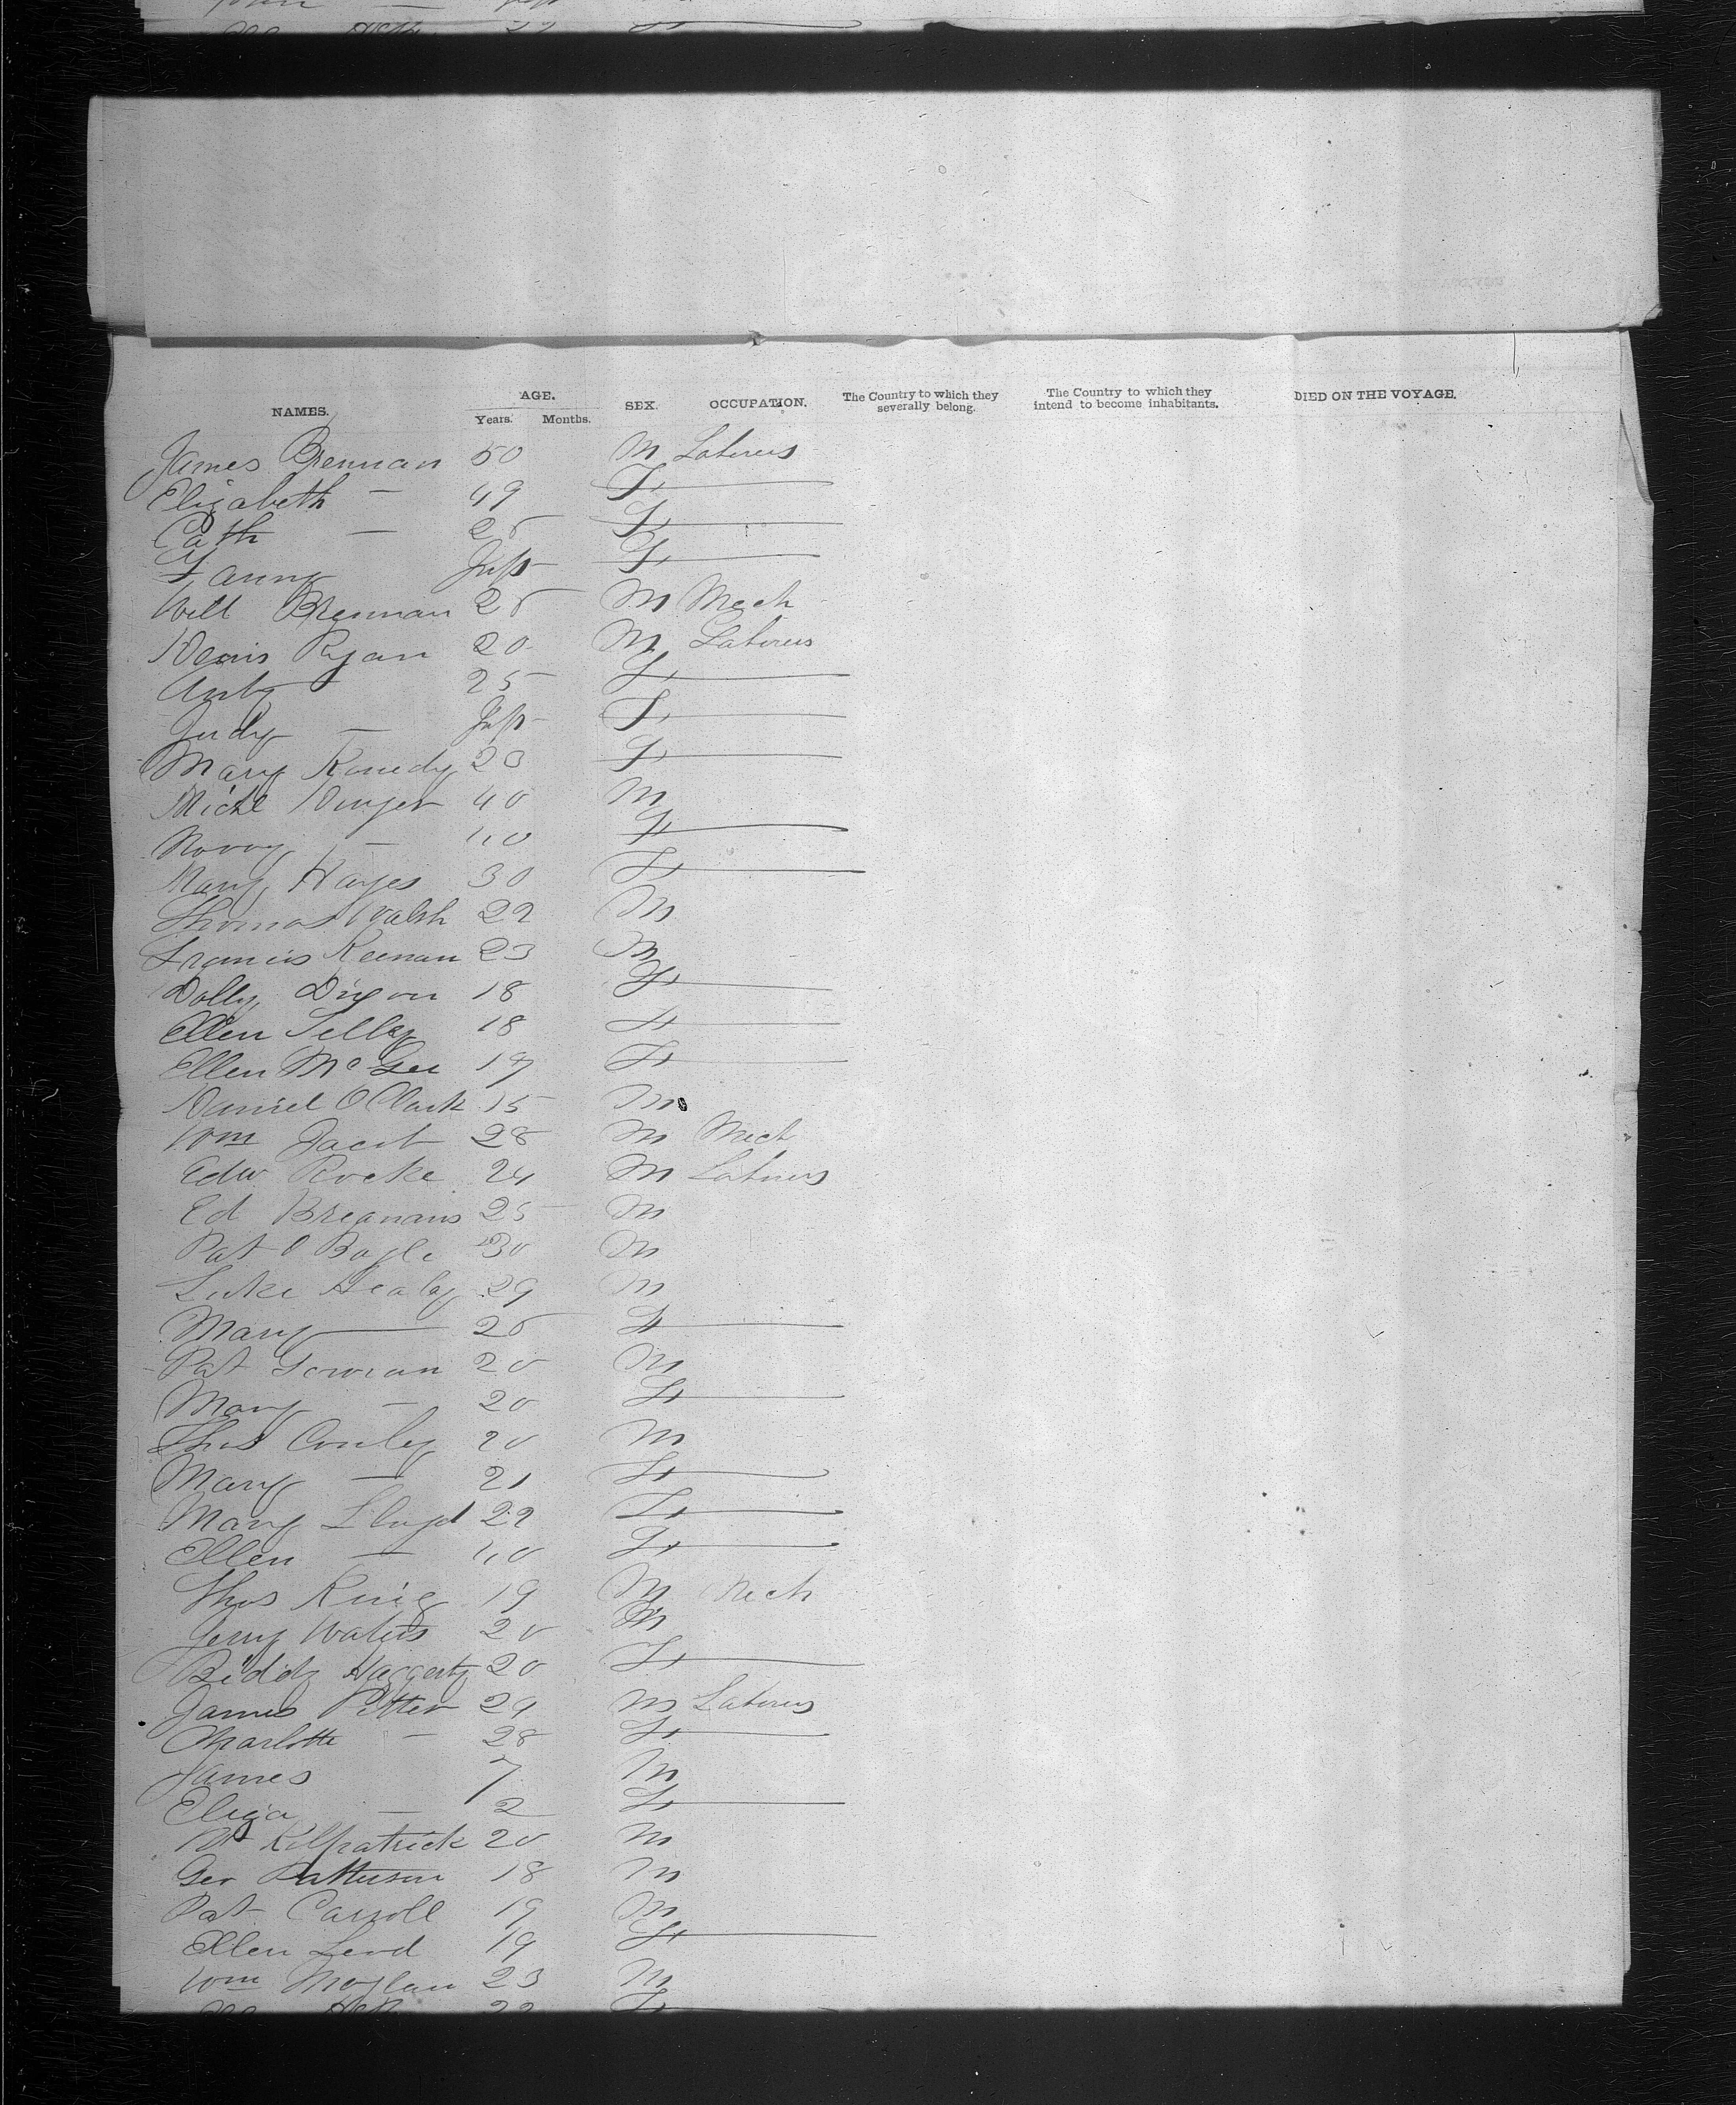 NAMES. AGE. Years. Months. SEX. OCCUPATION. The Country to which they severally belong. The Country to which they intend to become inhabitants. DIED ON THE VOYAGE.
James Brennan 50 M Laborers
Elizabeth — 49 F
Cath — 25 F
Fanny Inft F
Will Brennan 25 M Mech
Denis Ryan 20 M Laborers
25 F
Judy — Inft F
Mary Kenedy 23 F
Michl Dwyer 40 M
— 40 F
Mary Hayes 30 F
Thomas Walsh 22 M
Francis Keenan 23 M
Dolly Dixon 18 F
Ellen 18 F
Ellen McGee 19 F
Daniel O Clark 15 M
Wm Jacob 28 M Mech
Edw Rocke 24 M Laborers
Ed 25 M
Pat O Bogle 30 M
Luke Healey 29 M
Mary — 25 F
Pat 20 M
Mary — 20 F
Thos Conley 20 M
Mary — 21 F
Mary Lloyd 22 F
Ellen — 40 F
Thos King 19 M Mech
Jerry Waters 20 M
Biddy Haggerty 20 F
James Potter 29 M Laborers
Charlotte — 28 F
James 7 M
Eliza — 2 F
Kilpatrick 20 M
Geo Patterson 18 M
Pat Carroll 19 M
Ellen 19 F
Wm Moylan 23 M
22 F